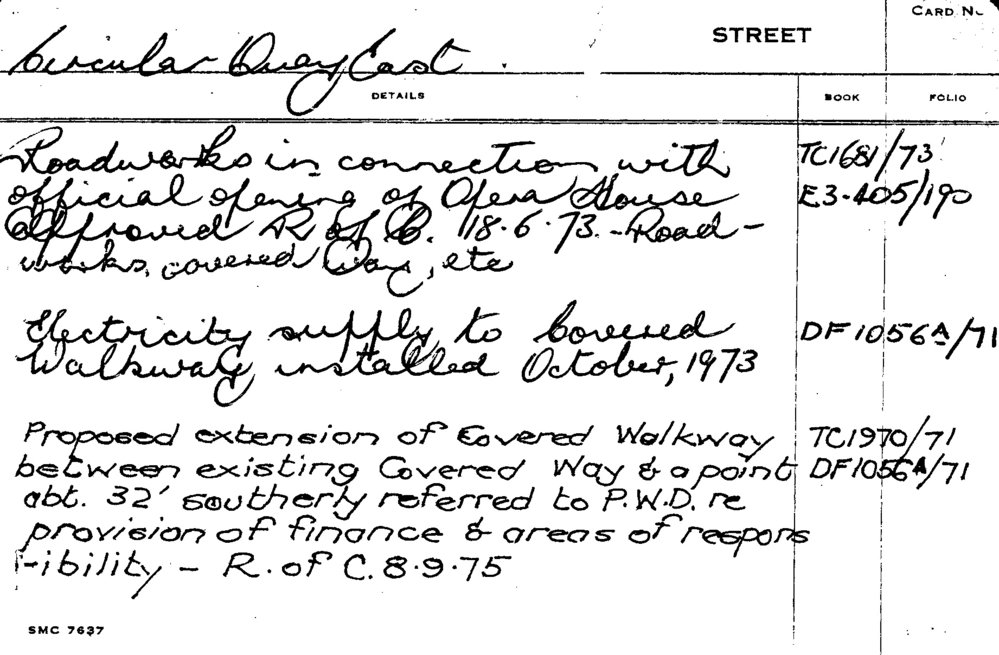 CARD No
STREET
Circular Quay East
DETAILS BOOK FOLIO
Roadworks in connection with TC1681/73
official opening of Opera House E3-405/190
approved R of C. 18.6.73. -Road-
works, covered Way, etc
Electricity supply to Covered DF1056A/71
Walkway installed October, 1973
Proposed extension of Covered Walkway TC1970/71
between existing Covered Way & a point DF1056A/71
abt. 32' southerly referred to P.W.D. re
provision of finance & areas of respons
-ibility - R. of C. 8.9.75
SMC 7637